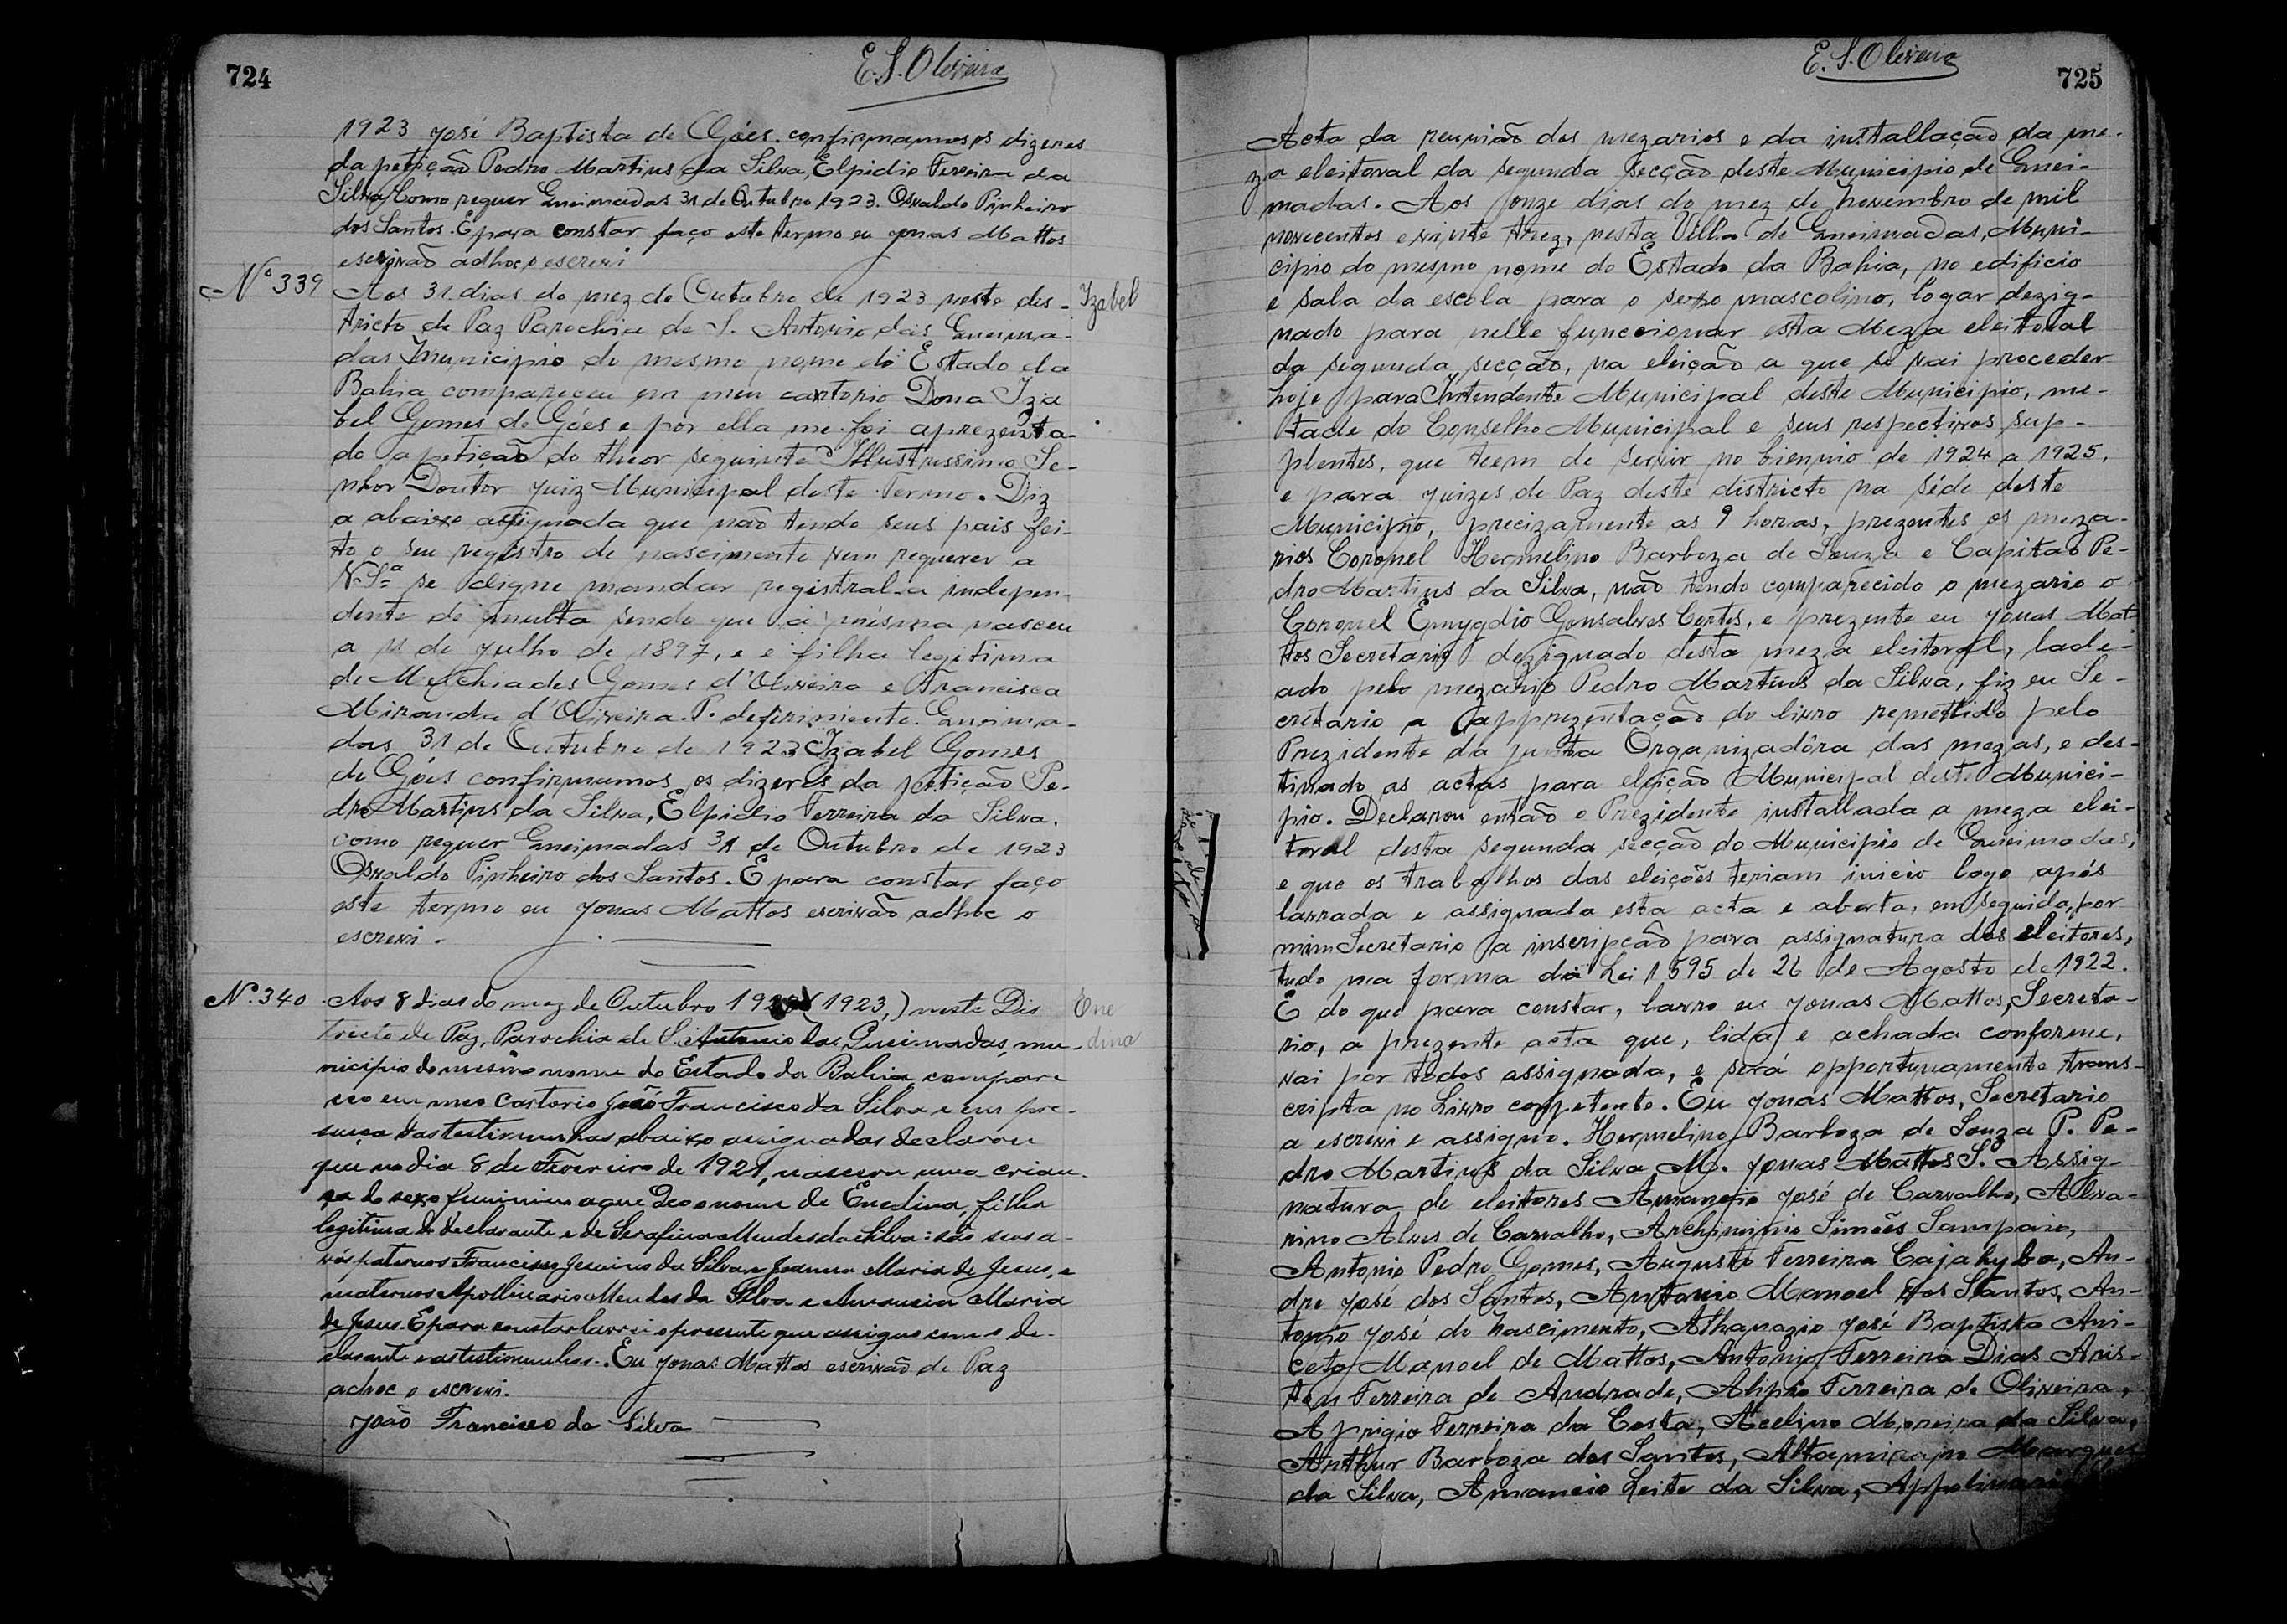 724
E. S. Oliveira
1923 José Baptista de Góes. confirmamos os dizeres
da petição Pedro Martins da Silva, Elpidio Ferreira da
Silva Como requer Queimadas 31 de Outubro 1923. Osvaldo Pinheiro
dos Santos. E para constar faço este termo eu Jonas Mattos
escrivão adhoc o escrevi
Nº 339
Izabel
Aos 31 dias do mez de Outubro de 1923 neste des-
tricto de Paz Parochia de S. Antonio das Queima-
das Municipio do mesmo nome do Estado da
Bahia compareceu em meu cartorio Dona Iza
bel Gomes de Góes e por ella me foi aprezenta-
do a petição do theor seguinte Illustrissimo Se-
nhor Doutor Juiz Municipal deste Termo. Diz
a abaixo assignada que não tendo seus pais fei-
to o seu registro de nascimento vem requerer a
V. Sª se digne mandar registral-a indepen-
dente de multa sendo que a mésma nasceu
a 11 de Julho de 1897, e é filha legitima
de Melchiades Gomes d'Oliveira e Francisca
Miranda d'Oliveira. P. deferimento. Queima-
das 31 de Outubro de 1923 Izabel Gomes
de Góes confirmamos os dizeres da petição Pe-
dro Martins da Silva, Elpidio Ferreira da Silva.
como requer Queimadas 31 de Outubro de 1923
Osvaldo Pinheiro dos Santos. E para constar faço
este termo eu Jonas Mattos escrivão adhoc o
escrevi.
Nº 340
Ene
dina
Aos 8 dias do mez de Outubro (1923,) neste Dis
tricto de Paz, Parochia de S. Antonio das Queimadas, mu-
nicipio do mesmo nome do Estado da Bahia, compare
ceo em meo Cartorio João Francisco da Silva e em pre-
sença das testimunhas abaixo assignadas declarou
que no dia 8 de Fevereiro de 1921, nasceu uma crian-
ça do sexo feminino a que deo o nome de Enedina, filha
legitima do declarante e de Serafina Mendes da Silva: são seus a-
vós paternos Francisco da Silva e Joanna Maria de Jesus, e
maternos Apollinario Mendes da Silva e Maria
de Jesus. E para constar lavrei o presente que assigno com o de-
clarante e as testimunhas. Eu Jonas Mattos escrivão de Paz
adhoc o escrevi.
João Francisco da Silva
E. S. Oliveira
725
Acta da reunião dos mezarios e da installação da me-
za eleitoral da segunda secção deste Municipio de Quei-
madas. Aos onze dias do mez de Novembro de mil
novecentos e vinte trez, nesta Villa de Queimadas, Muni-
cipio do mesmo nome do Estado da Bahia, no edificio
e sala da escola para o sexo mascolino, logar dezig-
nado para nelle funccionar esta Meza eleitoral
da segunda secção, na eleição a que se vai proceder
hoje para Intendente Municipal deste Municipio, me-
tade do Conselho Municipal e seus respectivos sup-
plentes, que teem de servir no biennio de 1924 a 1925,
e para juizes de Paz deste districto na séde deste
Municipio, precizamente as 9 horas, prezentes os meza-
rios Coronel Hermelino Barboza de Souza e Capitão Pe-
dro Martins da Silva, não tendo comparecido o mezario o
Coronel Emygdio Gonsalves Cortes, e prezente eu Jonas Mat-
tos Secretario dezignado desta meza eleitoral, lade-
ado pelo mezario Pedro Martins da Silva, fiz eu Se-
cretario a apprezentação do livro remettido pelo
Prezidente da Junta Organizadôra das mezas, e des-
tinado as actas para eleição Municipal deste Munici-
pio. Declarou então o Prezidente installada a meza elei-
toral desta segunda secção do Municipio de Queimadas,
e que os trabalhos das eleições teriam inicio logo após
lavrada e assignada esta acta e aberta, em seguida, por
mim Secretario a inscripção para assignatura dos eleitores,
tudo na forma da Lei 1595 de 26 de Agosto de 1922.
E do que para constar, lavro eu Jonas Mattos, Secreta-
rio, a prezente acta que, lida e achada conforme,
vai por todos assignada, e será opportunamente trans-
cripta no Livro competente. Eu Jonas Mattos, Secretario
a escrevi e assigno. Hermelino Barboza de Souza P. Pe-
dro Martins da Silva M. Jonas Mattos S. Assig-
natura de eleitores Amancio José de Carvalho, Alva-
rino Alves de Carvalho, Archiminio Simões Sampaio,
Antonio Pedro Gomes, Augusto Ferreira Cajahyba, An-
dre José dos Santos, Antonio Manoel dos Santos, An-
tonio José do Nascimento, Athanazio José Baptista Ani-
ceto Manoel de Mattos, Antonio Ferreira Dias Aris-
teu Ferreira de Andrade, Alipio Ferreira de Oliveira,
Aprigio Ferreira da Costa, Avelino Moreira da Silva,
Arthur Barboza dos Santos, Altamirano Marques
da Silva, Amancio Leite da Silva,